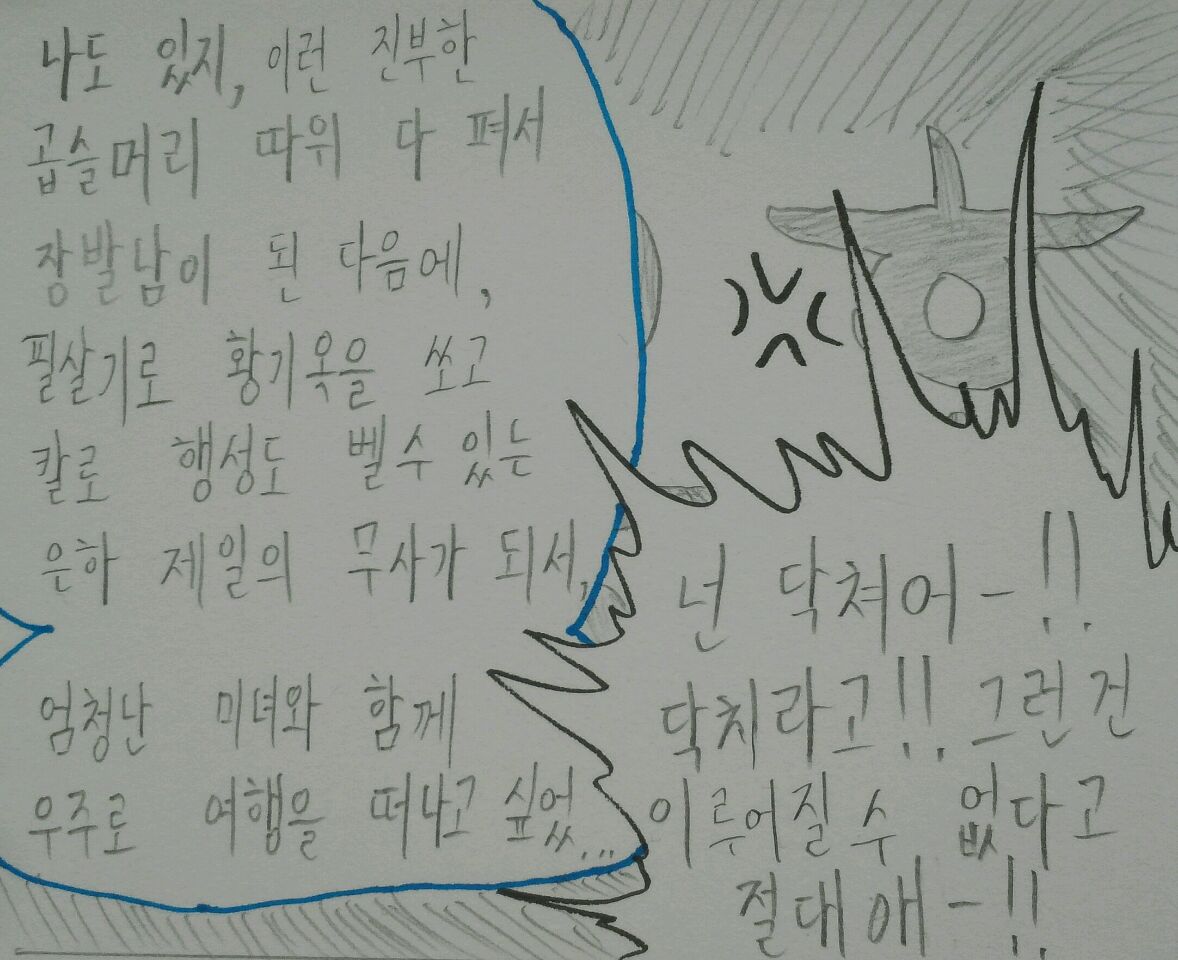 나도 있지, 이런 진부한
곱슬머리 따위 다 펴서
장발남이 된 다음에,
필살기로 황기옥을 쏘고
칼로 행성도 벨 수 있는
은하 제일의 무사가 되서,
엄청난 미녀와 함께
우주로 여행을 떠나고 싶었...
넌 닥쳐어-!!
닥치라고!! 그런건
이루어질 수 없다고
절대애-!!